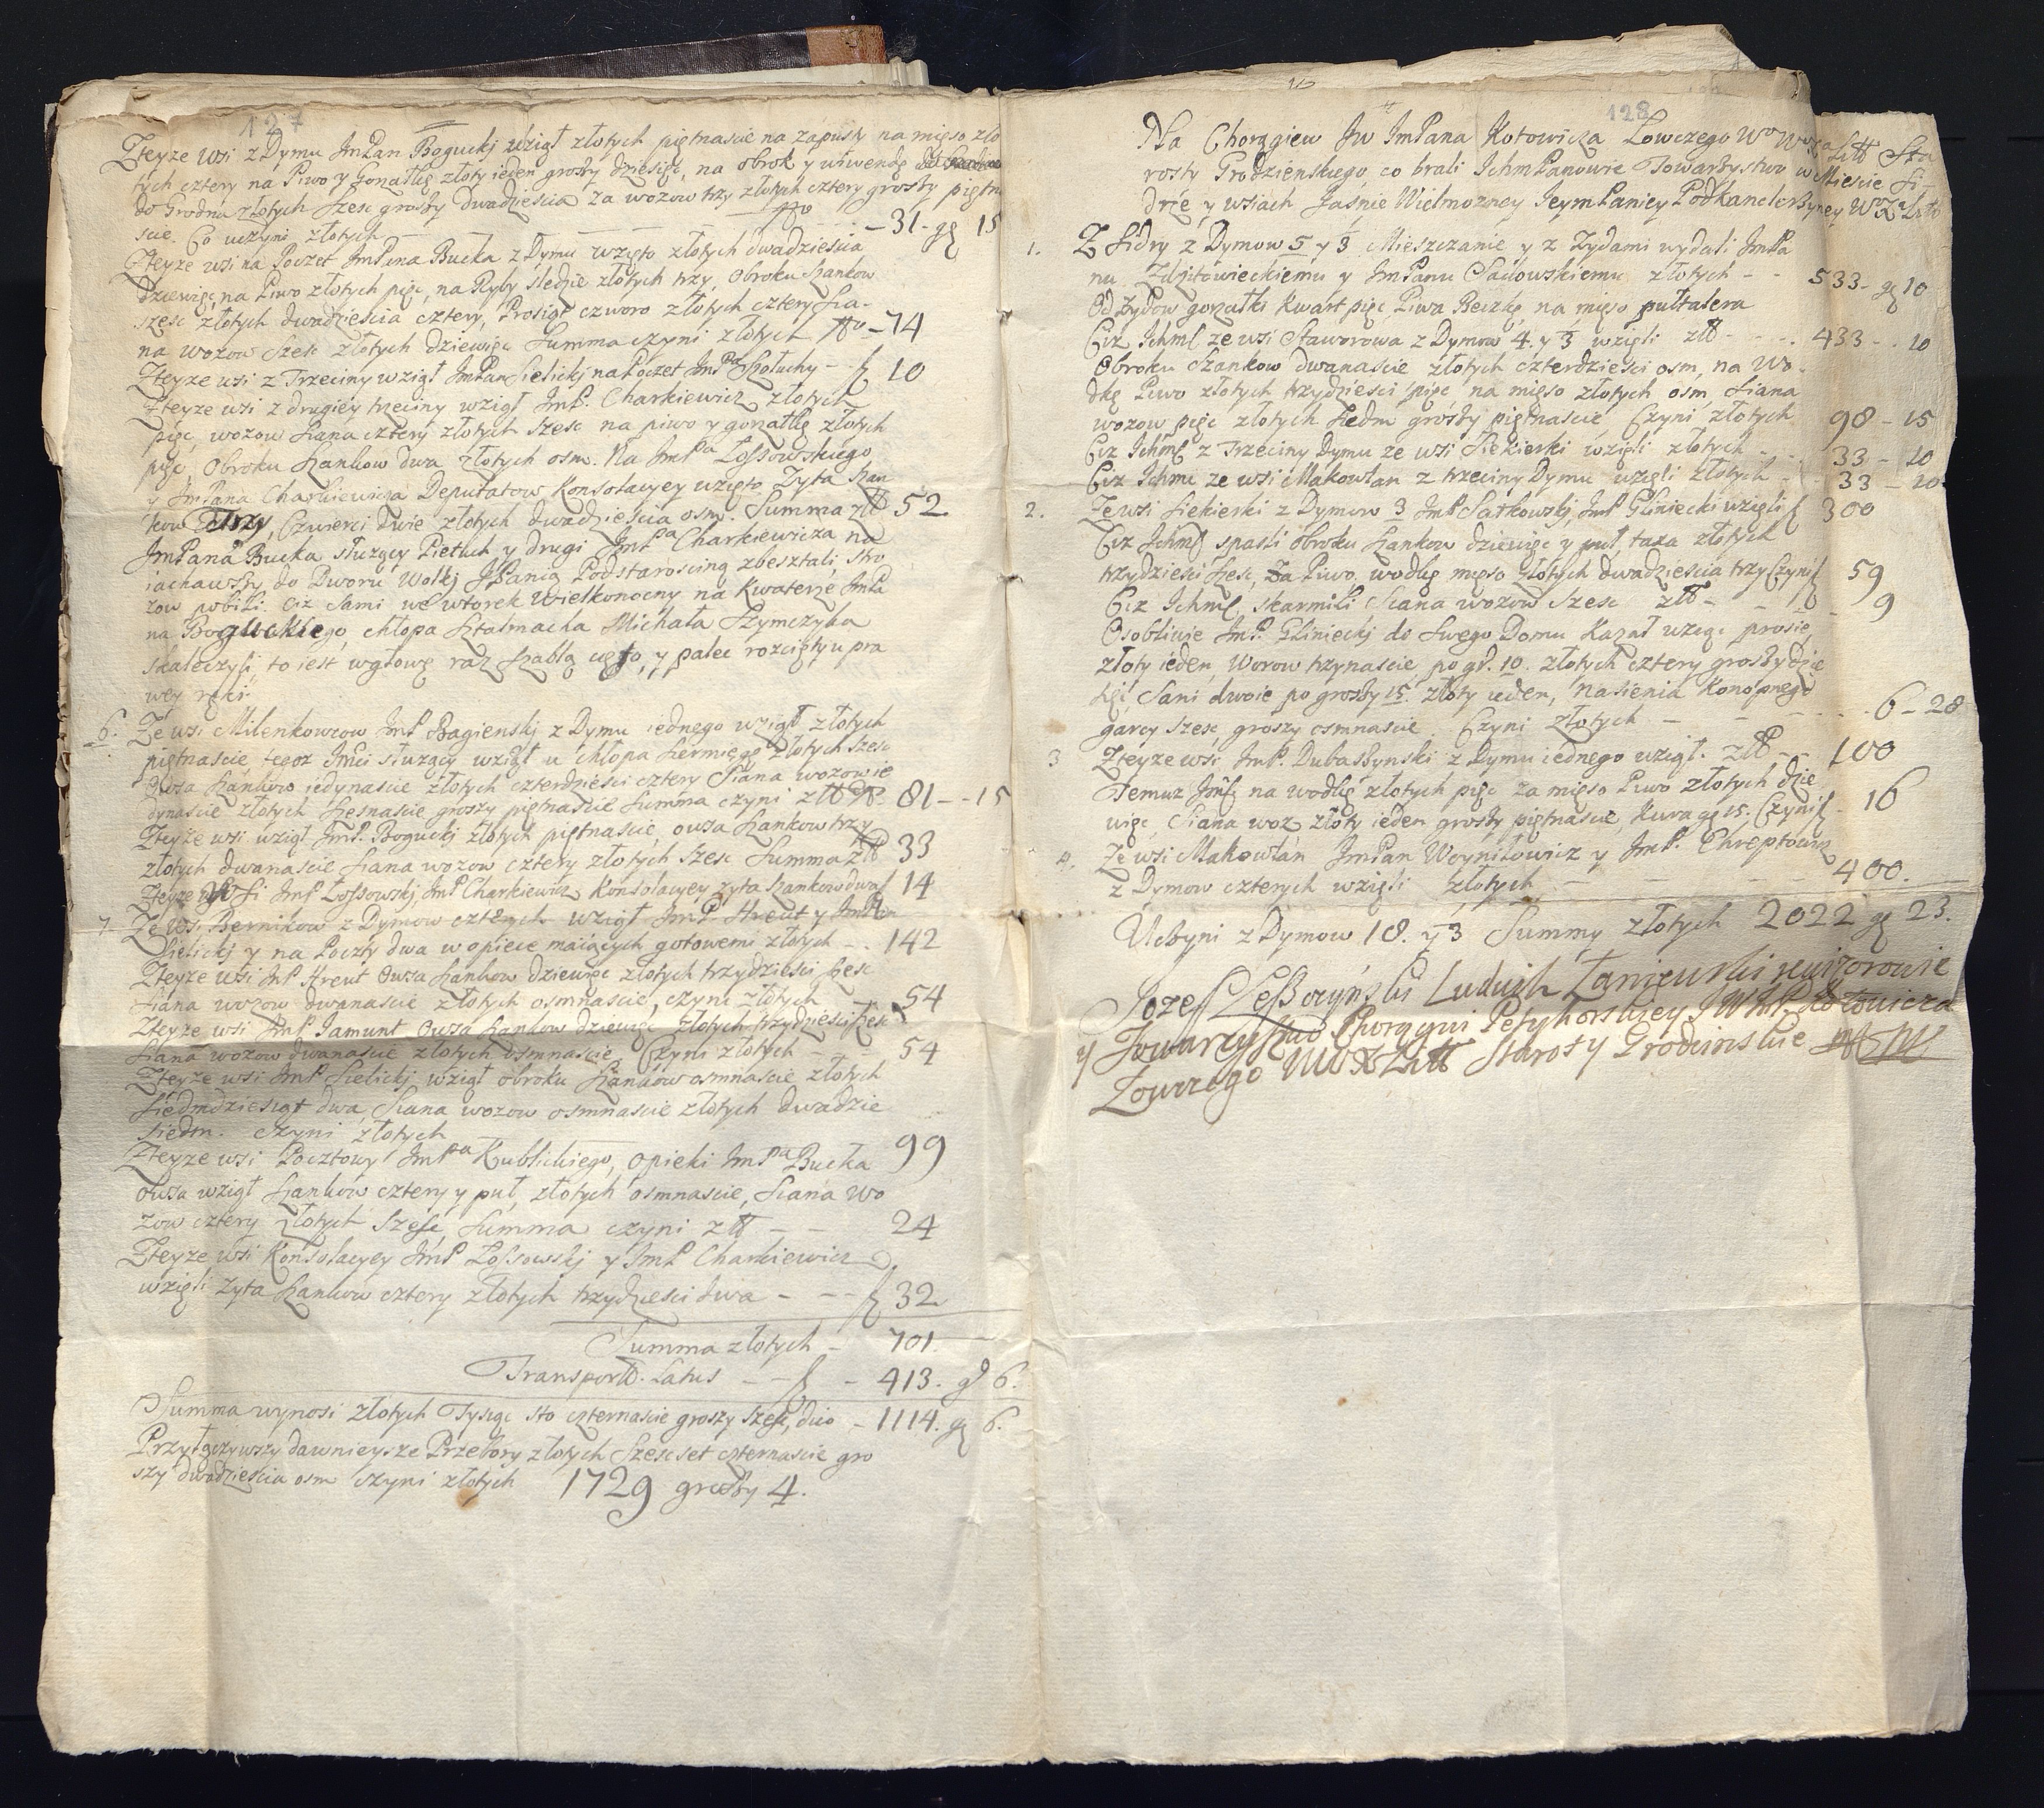 127
Zteyze wsi z Dymu ImPan Bogucki wziął złotych piętnascie na zapusty na mięso zło
tych cztery na Piwo y Gorzałkę złoty ieden groszy dziesięc, na obrok y utwendę
do Grodna złotych szesc groszy dwadziescia za wozow trzy złotych cztery groszy piętna
scie. Co uczyni złotych - 31. gr 15
Zteyze wsi na Poczet ImPana Bucka z Dymu wzięto złotych dwadziescia
dziewięc, na Piwo złotych pięc, na Ryby sledzie złotych trzy, obroku szankow
szesc złotych dwadziescia cztery, Prosiąt czworo złotych cztery sia-
na wozow szesc złotych dziewięc Summa czyni złotych - 74
Zteyze wsi z Trzeciny wziął ImPan Sielickj na Poczet ImPa Szołuchy - 10
Zteyze wsi z drugiey trzeciny wziął ImP. Charkiewicz złotych
pięc, wozow siana cztery złotych szesc na piwo y gorzałkę złotych
pięc, obroku szankow dwa złotych osm. Na ImPa Łossowskiego
y ImPana Charkiewicza Deputatow Konsolacyey wzięto Zyta szan
kow Trzy, Czwierci dwie złotych dwadziescia osm. Summa złt 52
ImPana Bucka słuzący Pietuch y drugi ImPa Charkiewicza na
iachawszy do Dworu Wolkj JPanią Podstarosciną zbesztali, stro
zow pobili. Ciz sami we wtorek Wielkonocny na Kwaterze ImPa
na Boguckiego, chłopa Sztalmacha Michała Szymczyka
skaleczyli, to iest w głowę raz szablą cięto, y palec rozcięty u pra
wey ręki.
6. Ze wsi Milenkowcow ImP Bagienskj z Dymu iednego wziął złotych
piętnascie tegoz Imci słuzący wziął u chłopa siermięgę złotych szesc
Owsa szankow iedynascie złotych czterdziesci cztery Siana wozow ie
dynascie złotych szesnascie groszy piętnascie Summa czyni złt 81 - 15
Zteyze wsi wziął ImP. Boguckj złotych piętnascie, owsa szankow trzy
złotych dwanascie siana wozow cztery złotych szesc Summa złt 33
Zteyze wsi ImP Łossowskj, ImP Charkiewicz Konsolacyey zyta szankow dwa 14
7. Ze wsi Bernikow z Dymow czterech wziął ImP. Hreut y ImPan
Sielickj y na Poczty dwa w opiece maiących gotowemi złotych - 142
Zteyze wsi ImP Hreut Owsa szankow dziewięc złotych trzydziesci szesc
siana wozow dwanascie złotych osmnascie, czyni złotych 54
Zteyze wsi ImP Jamunt Owsa szankow dziewięc złotych trzydziesci szesc
Siana wozow dwanascie złotych osmnascie Czyni złotych - 54
Zteyze wsi ImP Sielickj wziął obroku szankow osmnascie złotych
siedmdziesiąt dwa, Siana wozow osmnascie złotych dwadzie
siedm. czyni złotych 99
Zteyze wsi Pocztowy ImPa Kublickiego, opieki ImPa Bucka
owsa wziął szankow cztery y puł, złotych osmnascie, siana wo
zow cztery złotych szesc, Summa czyni złt - - 24
Zteyze wsi Konsolacyey ImP Łossowskj y ImP Charkiewicz
wzięli zyta szankow cztery złotych trzydziesci dwa - - - 32
Summa złotych - 701.
Transport. Latus - - - 413. gr 6.
Summa wynosi złotych Tysiąc sto czternascie groszy szesc, dico - 1114. gr 6.
Przyłączywszy dawnieysze Przebory złotych Szescset czternascie gro
szy dwadziescia osm czyni złotych 1729 groszy 4.
128
Na Chorągiew Jw ImPana Kotowicza Łowczego Wo WXa Litt Sta
rosty Grodzienskiego, co brali IchmPanowie Towarzystwo w Miescie Si-
drze y wsiach Jaśnie Wielmozney JeymPaniey Podkanclerzyney WXa Litto
1. Z Sidry z Dymow 5 y 1/3 Mieszczanie y z Zydami wydali ImPa
nu Zdzitowieckiemu y ImPanu Sadowskiemu złotych - - 533 - gr 10
Od Zydow gorzałki kwart pięc, Piwa Beczkę, na mięso pułtalera
Ciz Ichmc ze wsi Staworowa z Dymow 4. y 1/3 wzięli złt - - - 433 - 10
Obroku Szankow dwanascie złotych czterdziesci osm, na Wo-
dkę Piwo złotych trzydziesci pięc na mięso złotych osm, Siana
wozow pięc złotych siedm groszy piętnascie Czyni złotych 98 - 15
Ciz Ichmc z Trzeciny Dymu ze wsi Siekierski wzięli złotych - - 33 - 10
Ciz Ichmc ze wsi Makowlan z trzeciny Dymu wzięli złotych - 33 - 10
2. Ze wsi Siekierski z Dymow 3 ImP Satkowskj, ImP Glinieckj wzięli 300
Ciz Ichmc spasli obroku szankow dziewięc y puł, taxa złotych
trzydziesci szesc, Za Piwo, wodkę mięso złotych dwadziescia trzy Czyni 59
Ciz Ichmc, skarmili siana wozow szesc złt - - - 9
Osobliwie ImP. Glinieckj do swego Domu kazał wziąc prosię
złoty ieden, Worow trzynascie po gr. 10. złotych cztery groszy dzie
sięc, Sani dwoie po groszy 15. złoty ieden, Nasienia konopnego
garcy szesc, groszy osmnascie. Czyni złotych - - - 6 - 28
3 Zteyze wsi, ImP. Dubaszynski z Dymu iednego wziął. złt - - 100
Temuz Jmsc na wodkę złotych pięc za mięso Piwo złotych dzie
więc, Siana woz złoty ieden groszy piętnascie, Kura gr 15. Czyni - 16
4. Ze wsi Makowlan ImPan Woyniłowicz y ImP. Chreptowicz
z Dymow czterech wzięli złotych - - - 400.
Uczyni z Dymow 18. y 3 Summy złotych 2022 gr 23.
Jozef Leszczyński Ludwik Łaniewski rewizorowie
y Towarzystwo Chorągwi Petyhorskiey JW ImP Kotowicza
Łowczego WWXLitt Starosty Grodzinskie